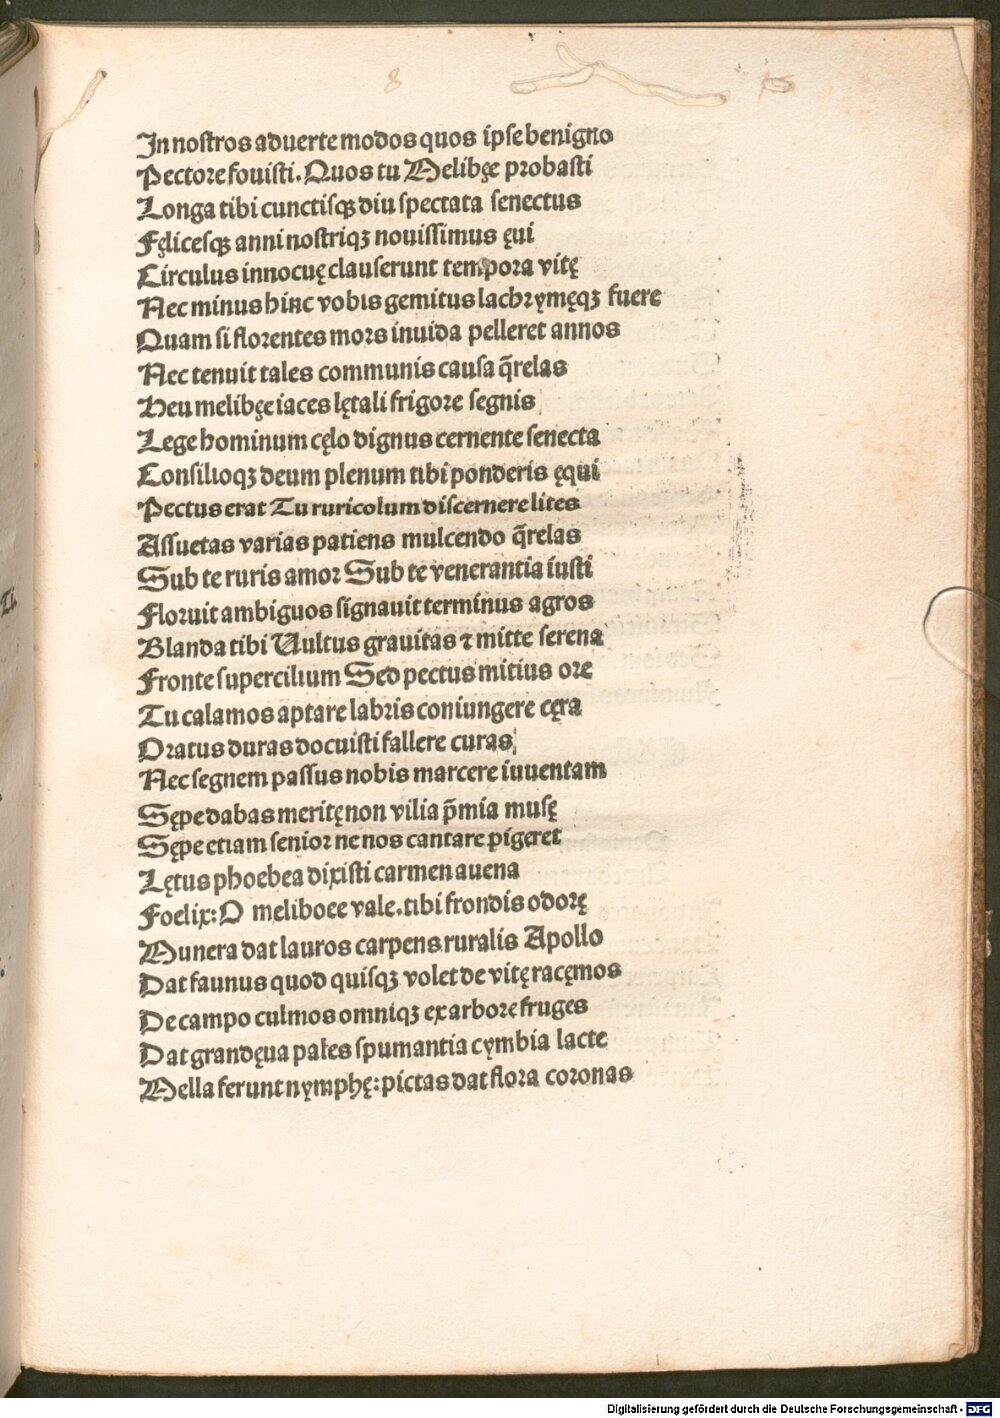 8
In nostros aduerte modos quos ipse benigno
Pectore fouisti. Quos tu Melibęe probasti
Longa tibi cunctisqꝫ diu spectata senectus
Fęlicesqꝫ anni nostriqꝫ nouissimus ęui
Circulus innocuę clauserunt tempora vitę
Nec minus hinc vobis gemitus lachrymęqꝫ fuere
Quam si florentes mors inuida pelleret annos
Nec tenuit tales communis causa q̄relas
Heu melibęe iaces lętali frigore segnis
Lege hominum cęlo dignus cernente senecta
Consilioqꝫ deum plenum tibi ponderis ęqui
Pectus erat Tu ruricolum discernere lites
Assuetas varias patiens mulcendo q̄relas
Sub te ruris amor Sub te venerantia iusti
Floruit ambiguos signauit terminus agros
Blanda tibi Vultus grauitas ⁊ mitte serena
Fronte supercilium Sed pectus mitius ore
Tu calamos aptare labris coniungere cęra
Oratus duras docuisti fallere curas
Nec segnem passus nobis marcere iuuentam
Sępe dabas meritę non vilia p̄mia musę
Sępe etiam senior ne nos cantare pigeret
Lętus phoebea dixisti carmen auena
Foelix: O meliboee vale. tibi frondis odorę
Munera dat lauros carpens ruralis Apollo
Dat faunus quod quisqꝫ volet de vitę racęmos
De campo culmos omniqꝫ ex arbore fruges
Dat grandęua pales spumantia cymbia lacte
Mella ferunt nymphę: pictas dat flora coronas
Digitalisierung gefördert durch die Deutsche Forschungsgemeinschaft - DFG